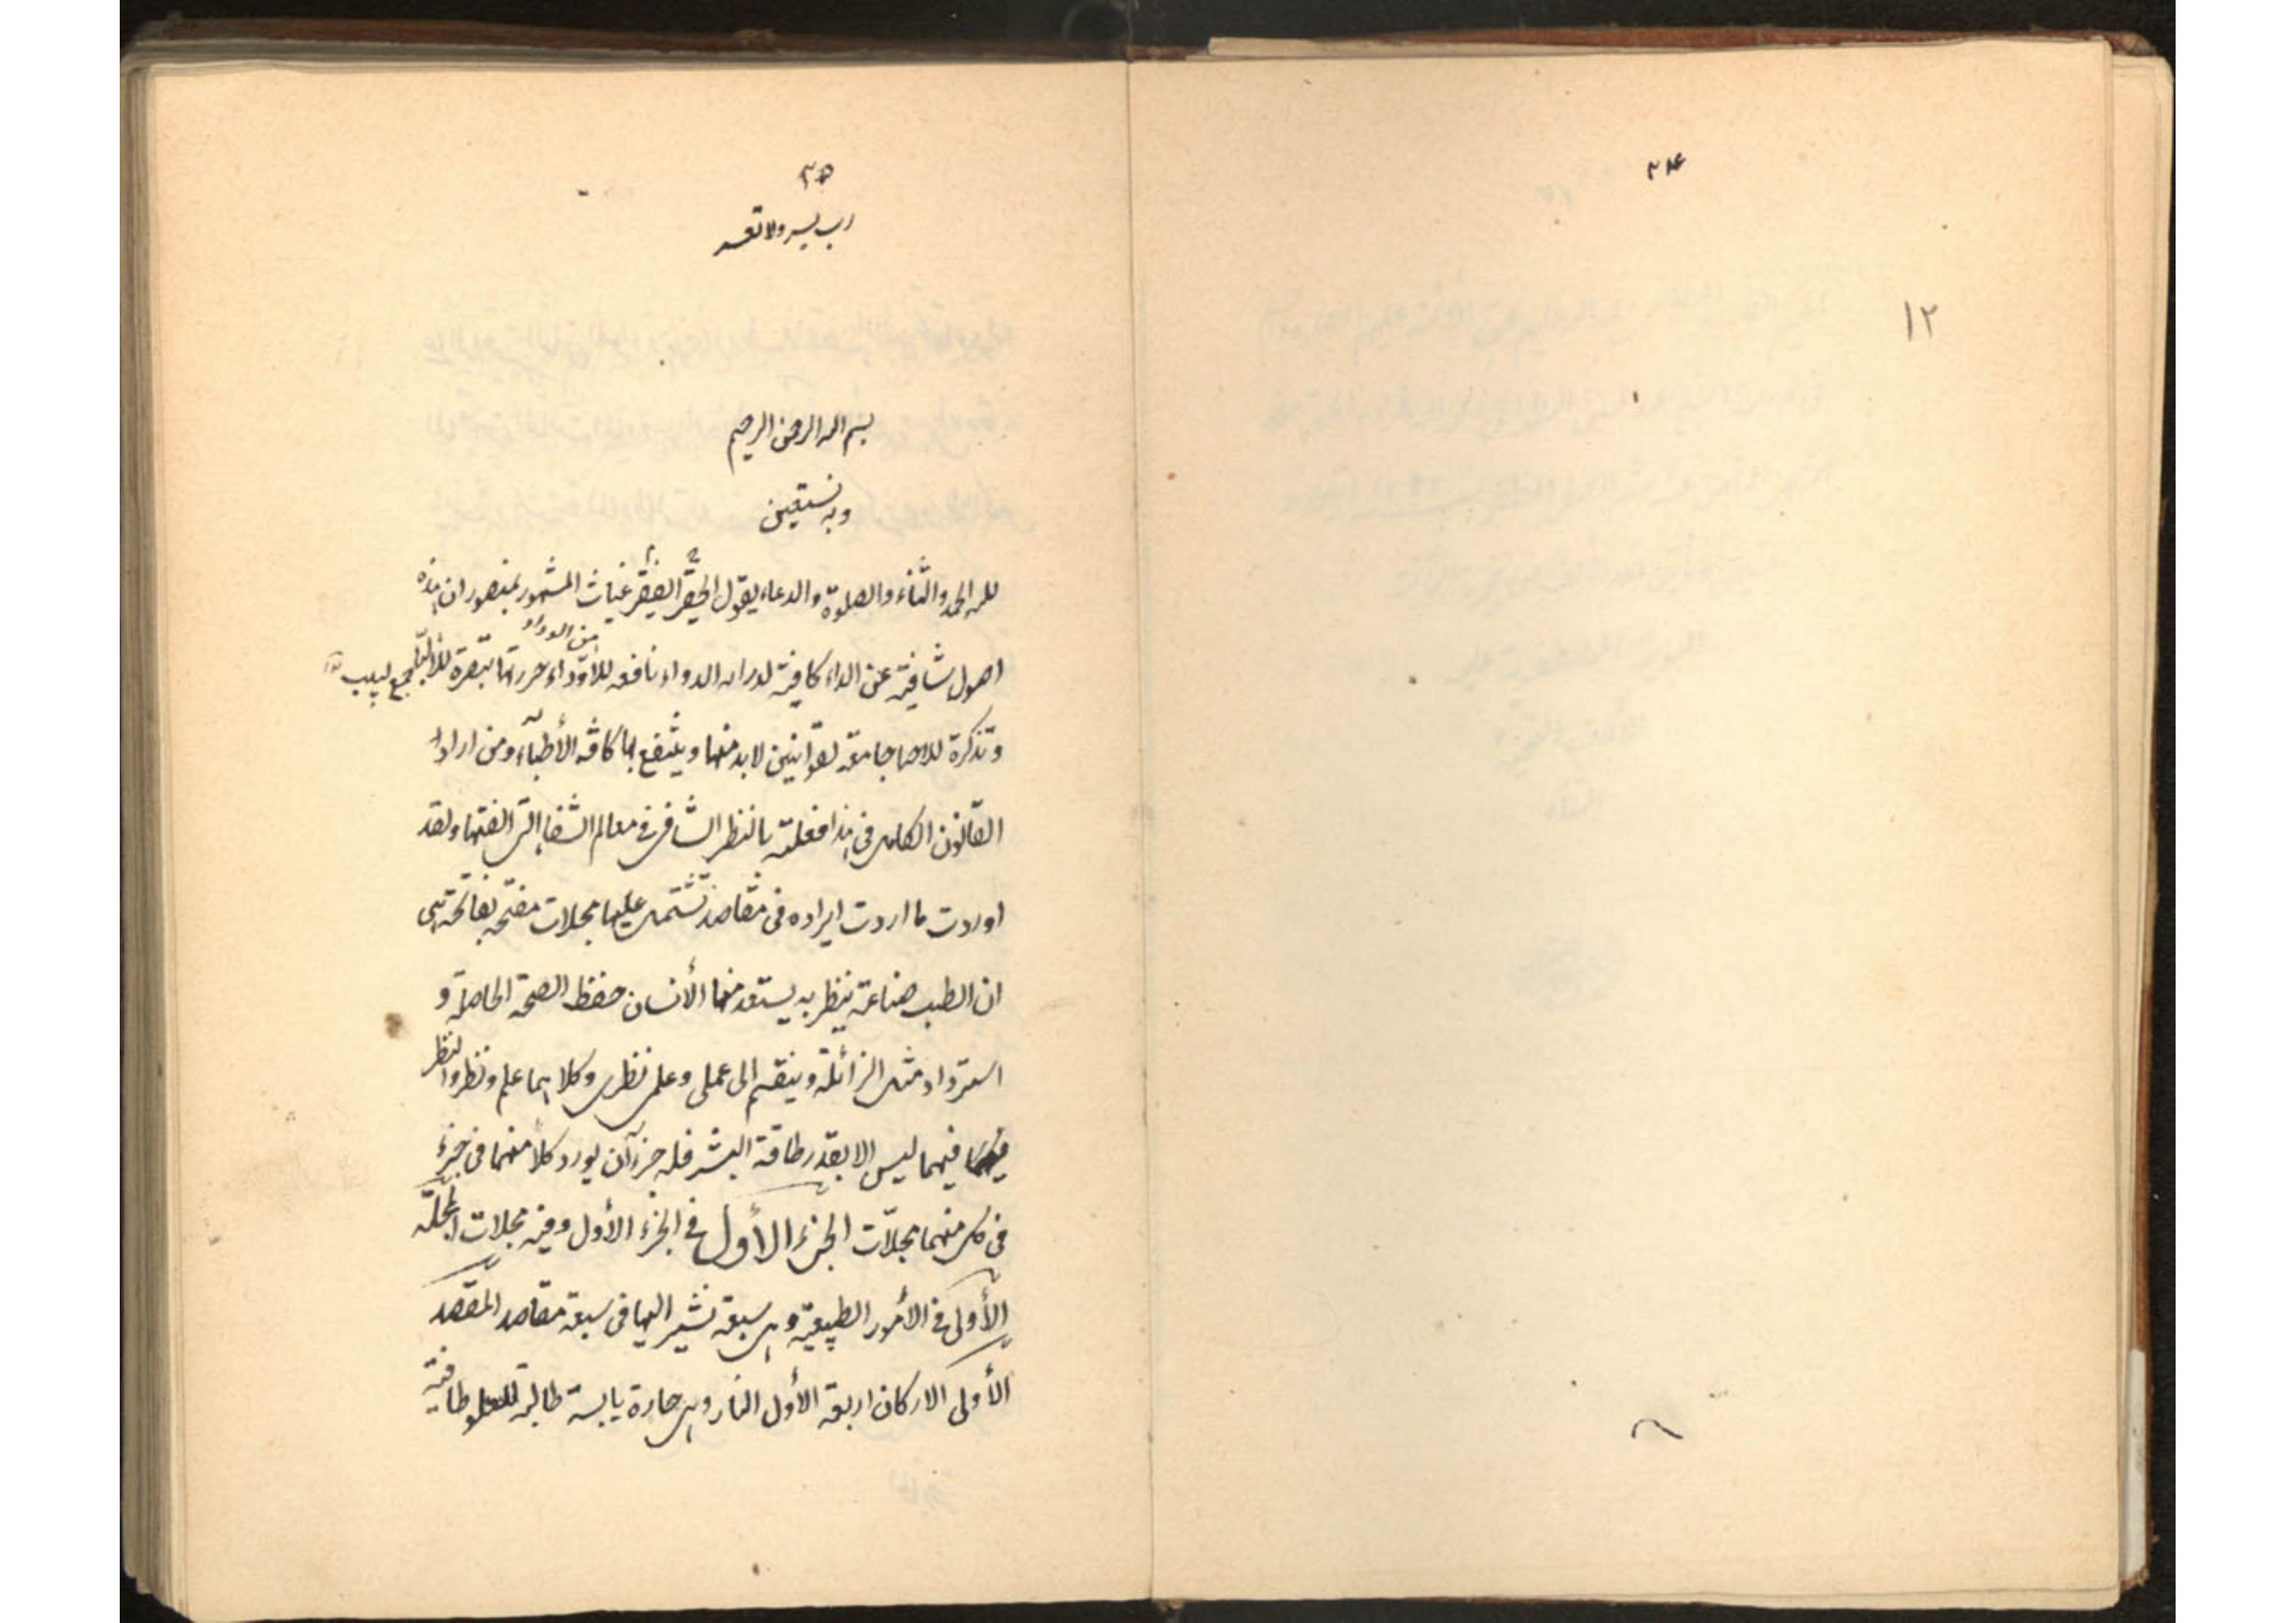 ٣٤
١٢
٣٥
رب يسر ولا تعسر
بسم الله الرحمن الرحيم
وبه نستعين
لله الحمد والثناء والصلوة والدعاء يقول الحقير الفقير غياث المشهور بمنصور ان هذه
من الادواء
اصول شافية عن الداء كافية لدرك الدواء نافعه للاوداء حررتها تبصرة
وتذكرة للاصحا جامعة لقوانين لابد منها وينتفع بها كافه الأطباء ومن اراد
القانون الكامل فى هذا فعليه بالنظر الشافى فى معالم الشفا التى الفتها ولقد
اوردت ما اردت ايراده فى مقاصد تشتمل عليها مجلات مفتحه بفاتحة هى
ان الطب صناعة ينظر به يستعد منها الأنسان حفظ الصحة الحاصلة و
استرداد مثل الزائلة وينقسم الى عملى وعلمى نظرى وكلاهما علم ونظر والنظر
فيهما ليس الا بقدر طاقة البشر فله جزآن يورد كلا منهما فى جزء
فى كل منهما مجلات الجزء الأول فى الجزء الأول وفيه مجلات المجلة
الأولى فى الأمور الطبيعية وهى سبعة نشير اليها فى سبعة مقاصد المقصد
الأولى الاركان اربعة الأول النار وهى حارة يابسة طالبة للعلو طافية